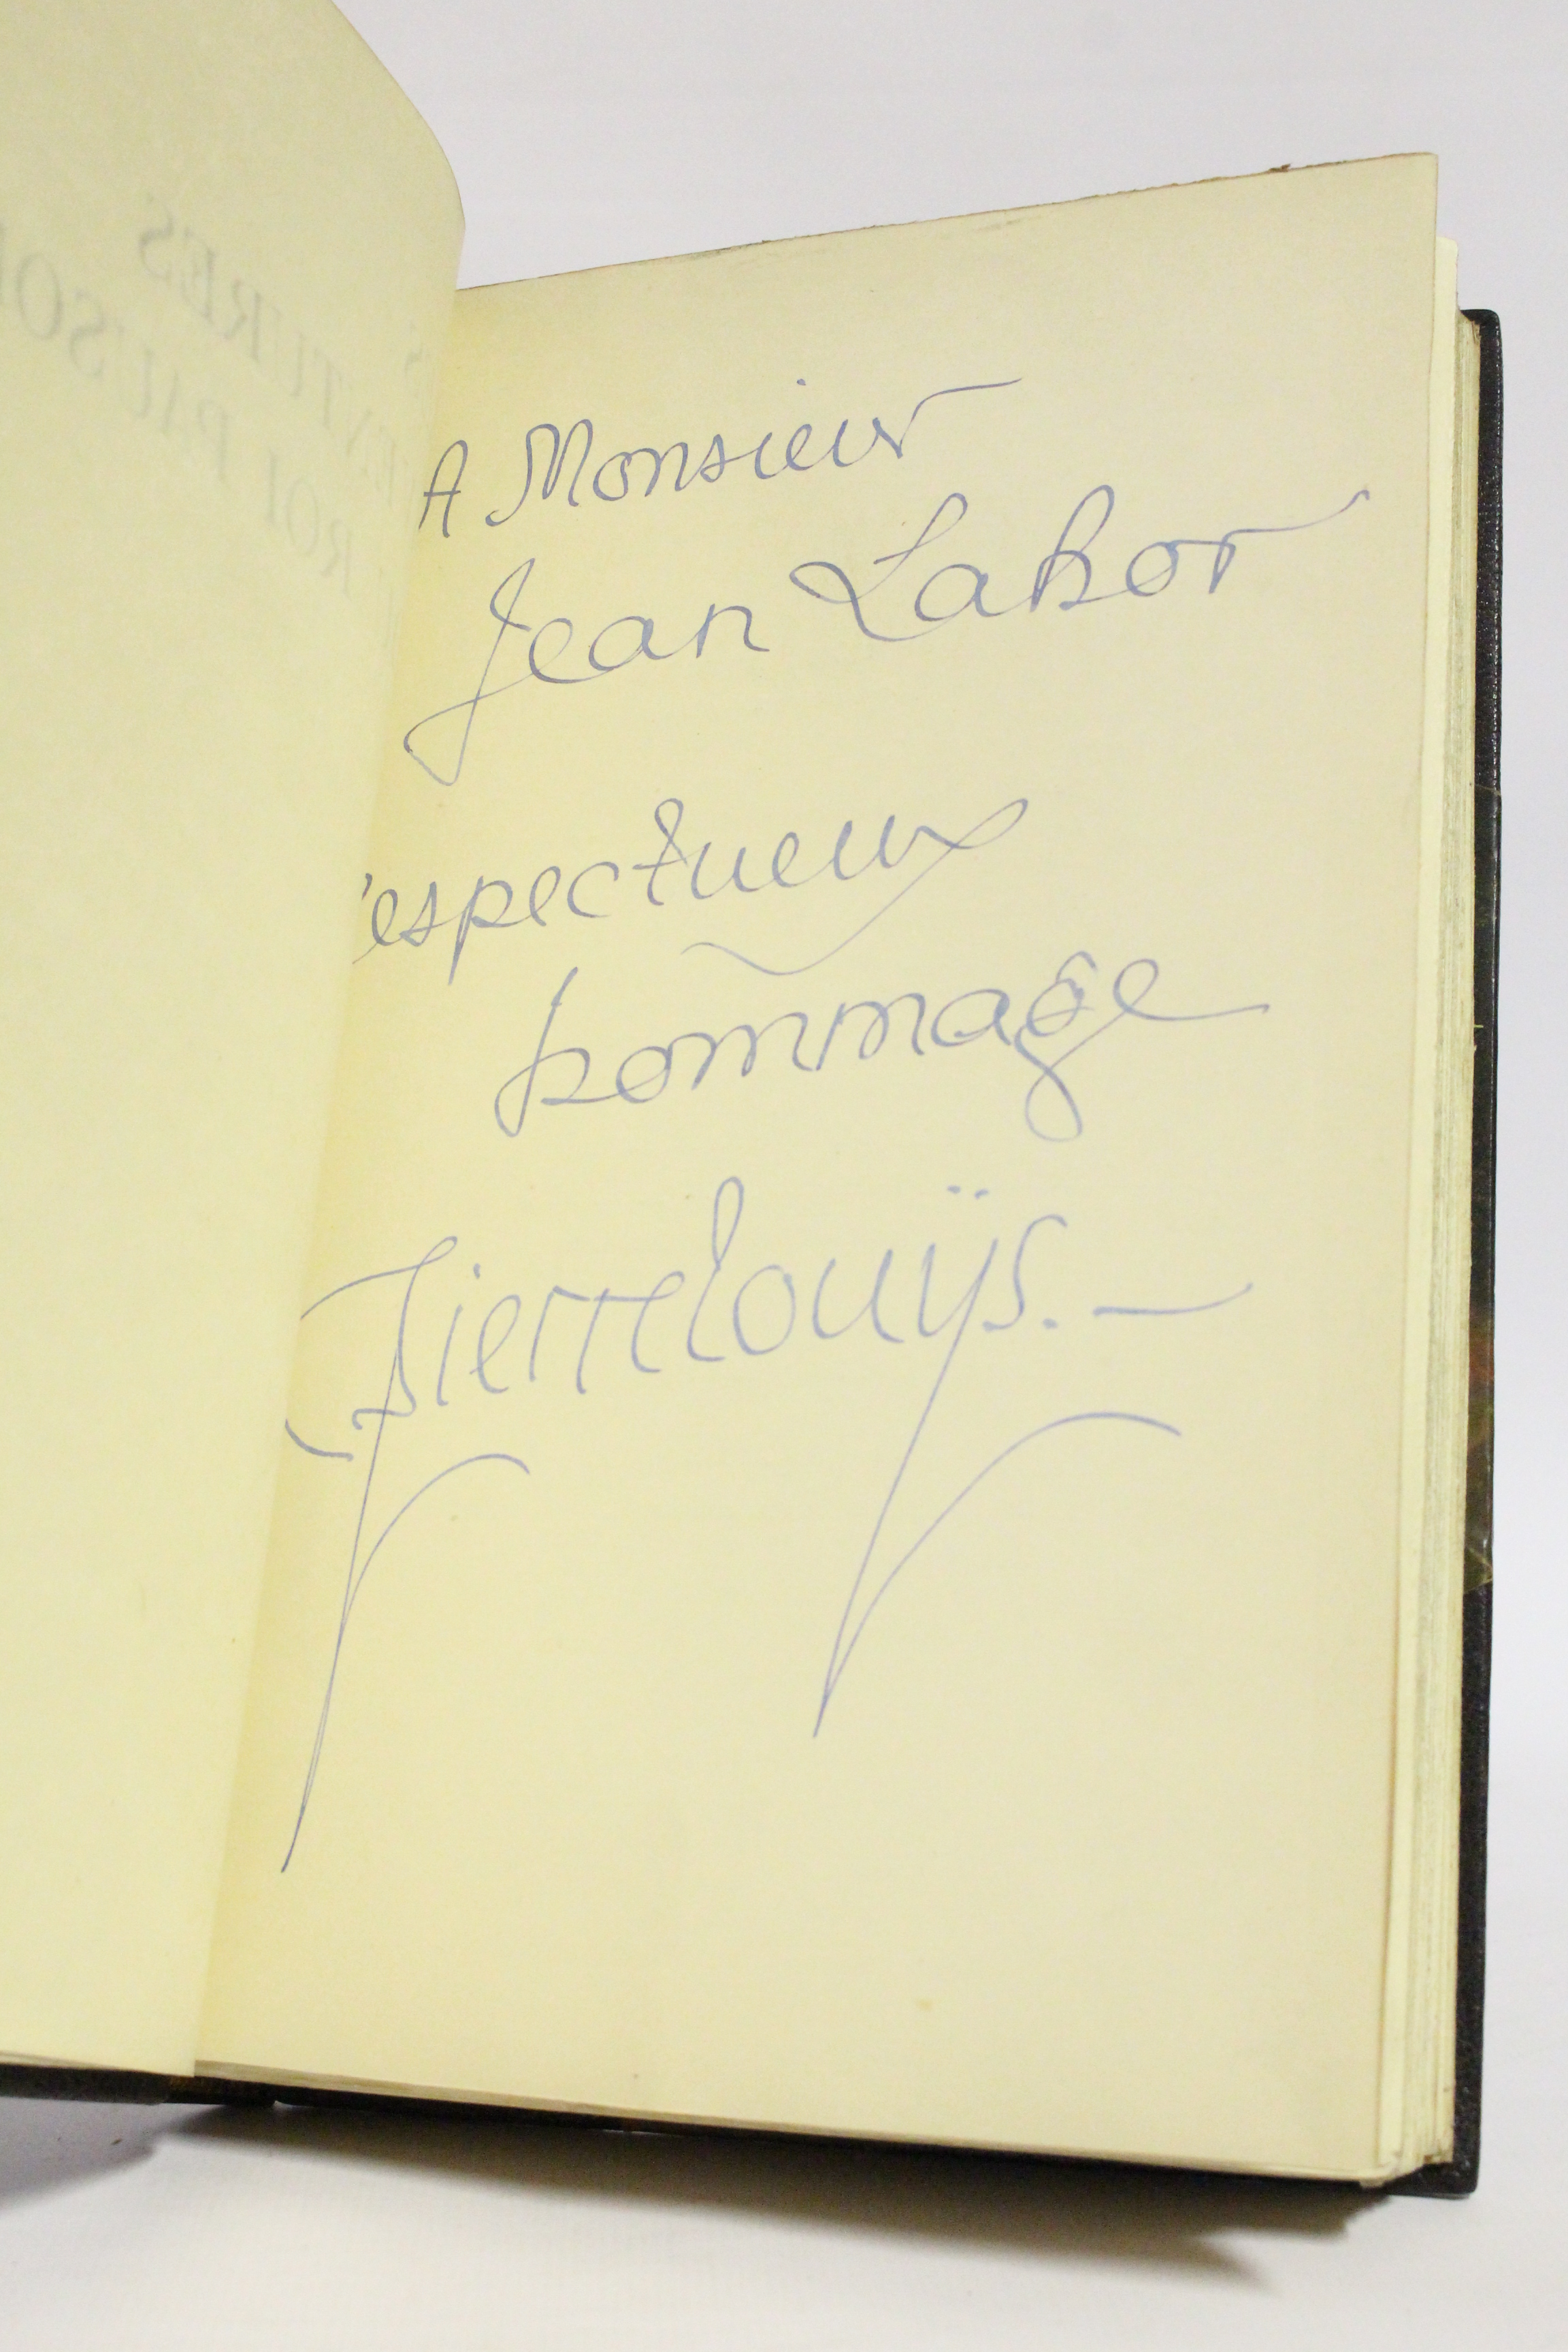 A Monsieur
Jean Lahor
respectueux
hommage
Pierre Louÿs. —